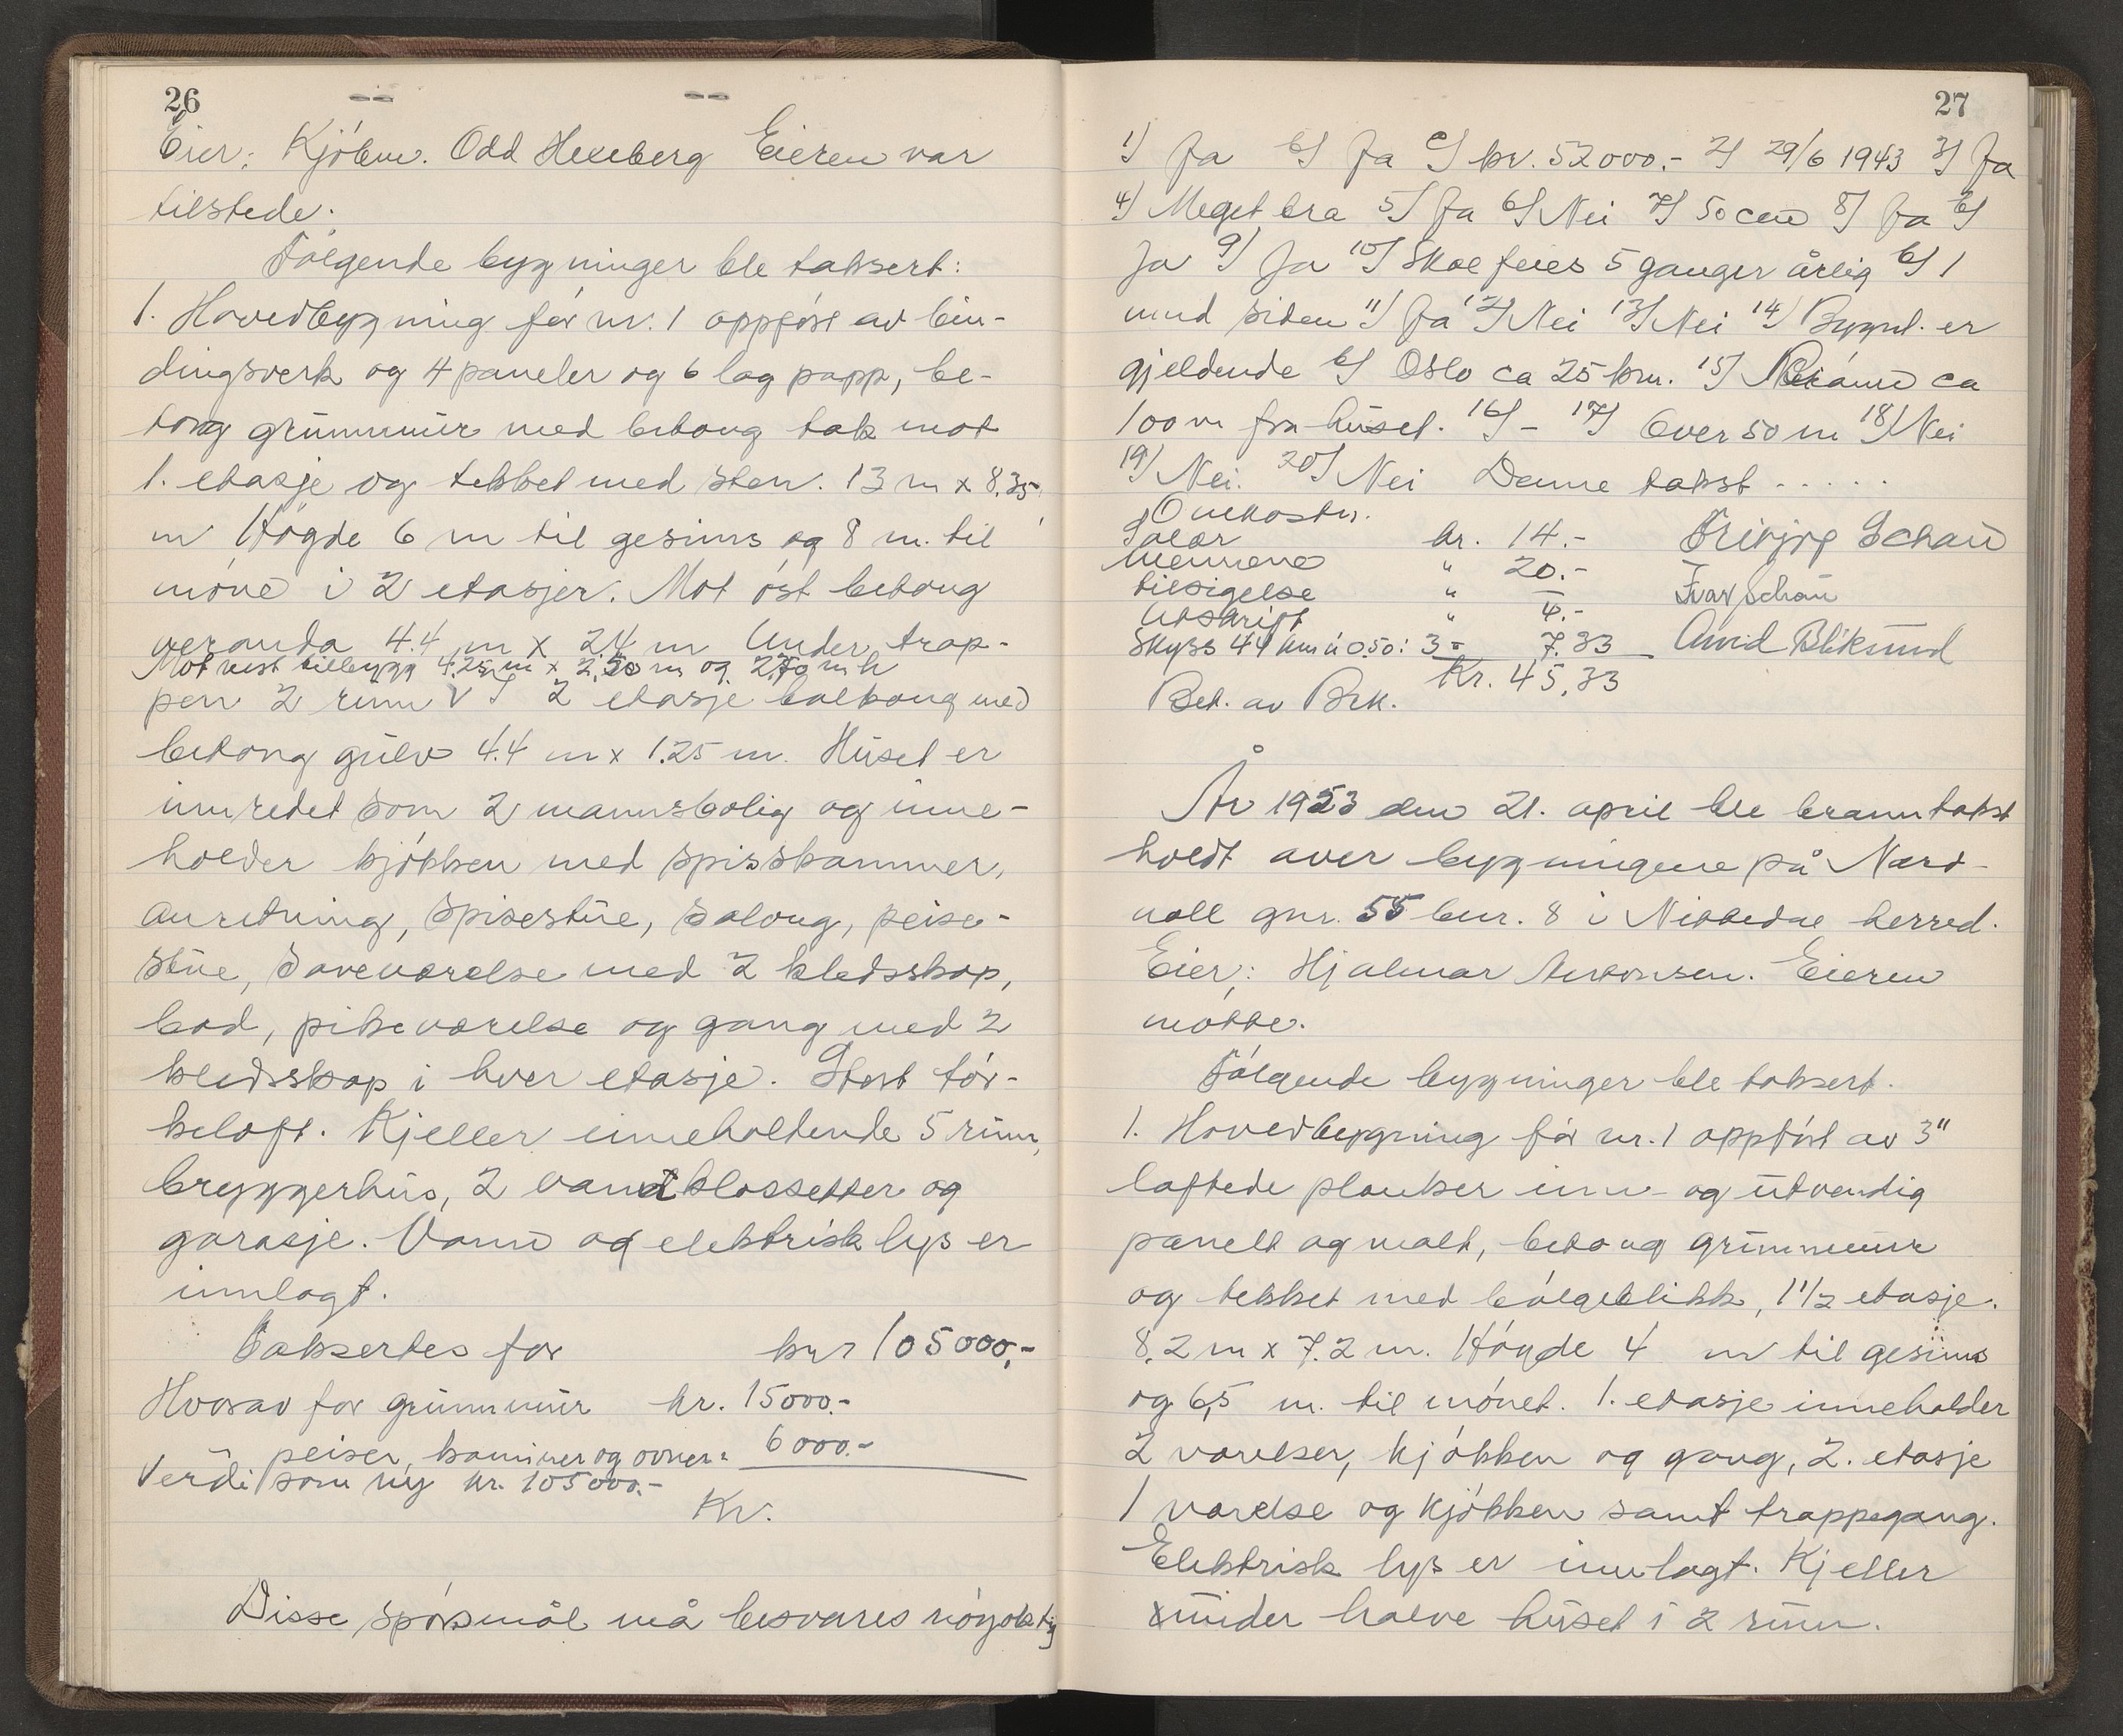 26
Eier: Kjöbm. Odd Hexeberg Eieren var
tilstede.
Fölgende bygninger ble taksert:
1. Hovedbygning för nr. 1 oppfört av bin-
dingsverk og 4 paneler og 6 lag papp, be-
tong grunnmur med betong tak mot
1. etasje og tekket med sten. 13 m x 8,35
m Högde 6 m til gesims og 8 m. til
möne i 2 etasjer. Mot öst betong
veranda 4.4 m x 2.4 m Under trap-
Mot vest tilbygg 4.25 m x 2,50 m og 2,70 m h
pen 2 rum V I 2 etasje balkong med
betong gulv 4.4 m x 1.25 m. Huset er
innredet som 2 mannsbolig og inne-
holder kjökken med spisskammer,
anretning, spisestue, salong, peise-
stue, soveværelse med 2 kledsskap,
bad, pikeværelse og gang med 2
kledsskap i hver etasje. Stort tör-
keloft. Kjeller inneholdende 5 rum,
bryggerhus, 2 vandklossetter og
garasje. Vann og elektrisk lys er
innlagt.
Taksertes for kr 105000,-
Hvorav for grunnmur kr. 15000.-
" peiser, kaminer og ovner " 6000.-
Verdi som ny kr. 105000.-
Kr.
Disse spörsmål må besvares nöyaktig
27
1) Ja b) Ja c) kr. 52000.- 2) 29/6 1943 3) Ja
4) Meget bra 5) Ja 6) Nei 7) 50 cm 8) Ja b)
Ja 9) Ja 10) Skal feies 5 ganger årlig b) 1
mnd siden 11) Ja 12) Nei 13) Nei 14) Bygnl. er
gjeldende b) Oslo ca 25 km. 15) ca
100 m fra huset. 16) - 17) Over 50 m 18) Nei
19) Nei. 20) Nei Denne takst .....
Omkostn.
Salær kr. 14.- Fritjof Schau
Mennene " 20.- Ivar Schau
tilsigelse " —
Utskrift " 4.-
Skyss 44 km à 0.50: 3 = 7.33 Arvid Bliksrud
Kr. 45,33
Bet. av Brk.
År 1953 den 21. april ble branntakst
holdt over bygningene på Nord-
voll gnr. 55 bnr. 8 i Nittedal herred.
Eier: Hjalmar Antonsen. Eieren
mötte.
Fölgende bygninger ble taksert.
1. Hovedbygning för nr. 1 oppfört av 3"
laftede planker inn- og utvendig
panelt og malt, betong grunnmur
og tekket med bölgeblikk, 1 1/2 etasje.
8,2 m x 7.2 m. Högde 4 m til gesims
og 6,5 m. til mönet. 1. etasje inneholder
2 værelser, kjökken og gang, 2. etasje
1 værelse og kjökken samt trappegang.
Elektrisk lys er innlagt. Kjeller
under halve huset i 2 rum.